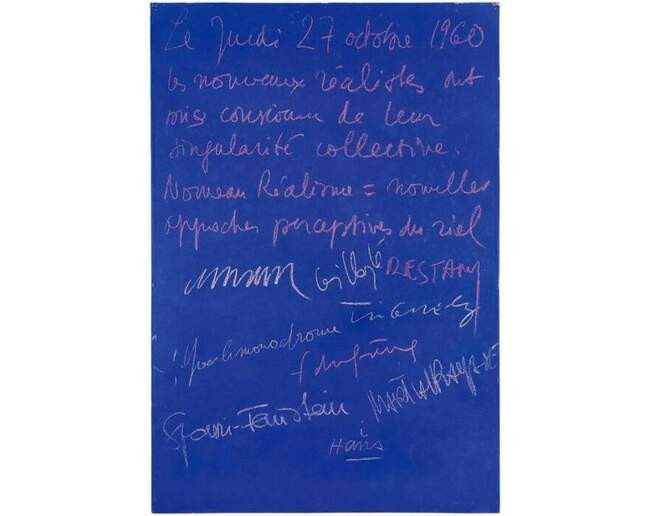 Le Jeudi 27 octobre 1960
les nouveaux réalistes ont
pris conscience de leur
singularité collective.
Nouveau Réalisme = nouvelles
approches perceptives du réel
Arman Villeglé RESTANY
Yves le monochrome Tinguely
f dufrêne
Spoerri-Feinstein MARTIAL RAYSSE
Hains